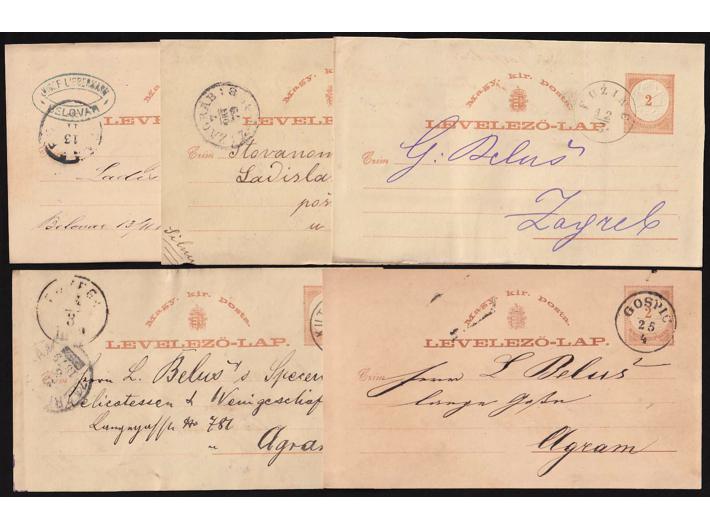 BELOVAR
13
11
Magy.
LEVELEZŐ-LAP.
Ladis
Belovar 13/
ZAGRAB
Magy. kir.
LEVELEZŐ
Czim
Stovanom
Ladisla
u
Magy. kir. posta.
2
LEVELEZŐ-LAP.
Czim
G: Beluš
Zagreb
Magy. kir. posta.
LEVELEZŐ-LAP.
KUT
Herrn L. Beluš's Specerei
Delicatessen & Weingeschäf
Langegasse No 781
" Agram
Magy. kir. posta.
2
LEVELEZŐ-LAP.
GOSPIC
25
4
Czim
Herrn L Beluš
lange Gasse
Agram